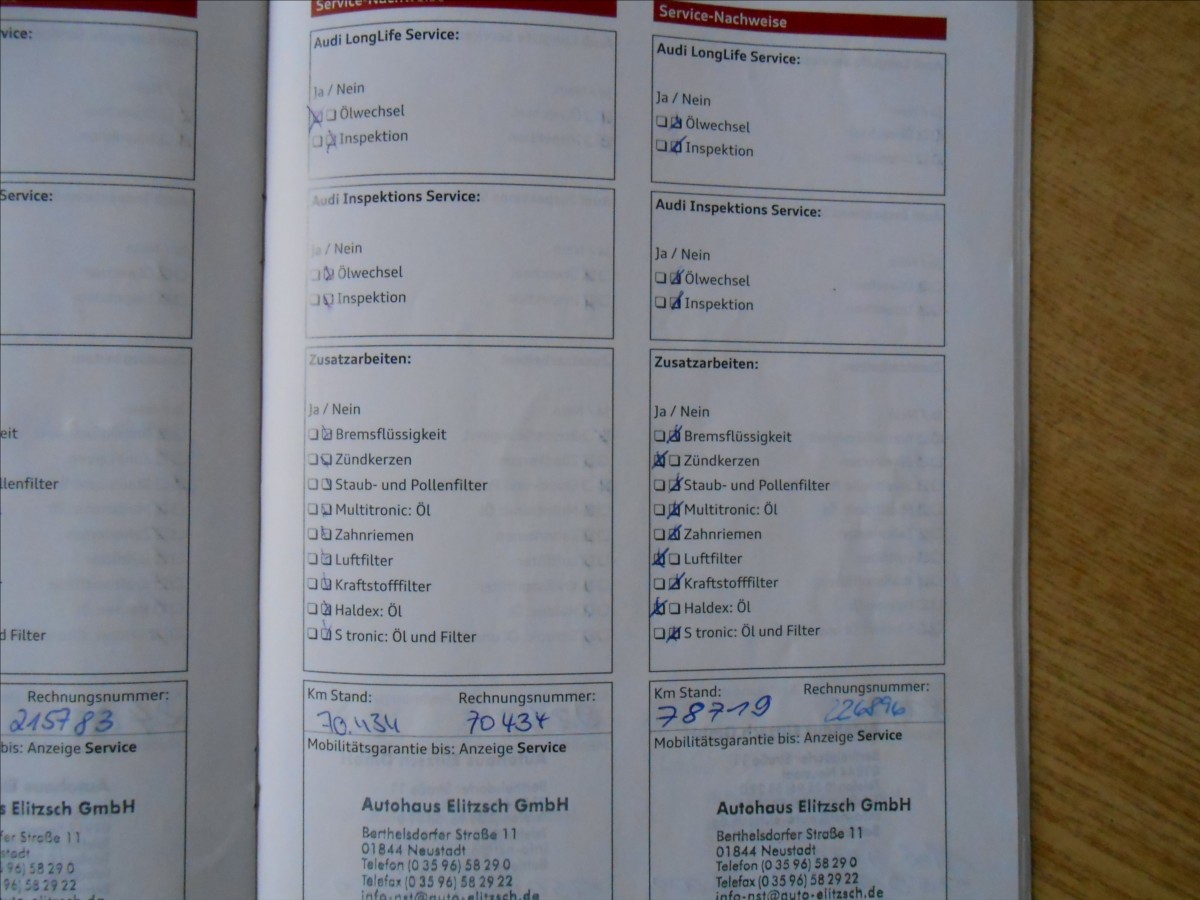 vice:
Service:
eit
llenfilter
d Filter
Rechnungsnummer:
215783
bis: Anzeige Service
s Elitzsch GmbH
fer Straße 11
stadt
5 96) 58 29 0
96) 58 29 22
to-elitzsch.de
Service-Nachweise
Audi LongLife Service:
Ja / Nein
Ölwechsel
Inspektion
Audi Inspektions Service:
Ja / Nein
Ölwechsel
Inspektion
Zusatzarbeiten:
Ja / Nein
Bremsflüssigkeit
Zündkerzen
Staub- und Pollenfilter
Multitronic: Öl
Zahnriemen
Luftfilter
Kraftstofffilter
Haldex: Öl
S tronic: Öl und Filter
Km Stand: Rechnungsnummer:
70.434 70434
Mobilitätsgarantie bis: Anzeige Service
Autohaus Elitzsch GmbH
Berthelsdorfer Straße 11
01844 Neustadt
Telefon (0 35 96) 58 29 0
Telefax (0 35 96) 58 29 22
info-nst@auto-elitzsch.de
Service-Nachweise
Audi LongLife Service:
Ja / Nein
Ölwechsel
Inspektion
Audi Inspektions Service:
Ja / Nein
Ölwechsel
Inspektion
Zusatzarbeiten:
Ja / Nein
Bremsflüssigkeit
Zündkerzen
Staub- und Pollenfilter
Multitronic: Öl
Zahnriemen
Luftfilter
Kraftstofffilter
Haldex: Öl
S tronic: Öl und Filter
Km Stand: Rechnungsnummer:
78719 226896
Mobilitätsgarantie bis: Anzeige Service
Autohaus Elitzsch GmbH
Berthelsdorfer Straße 11
01844 Neustadt
Telefon (0 35 96) 58 29 0
Telefax (0 35 96) 58 29 22
info-nst@auto-elitzsch.de